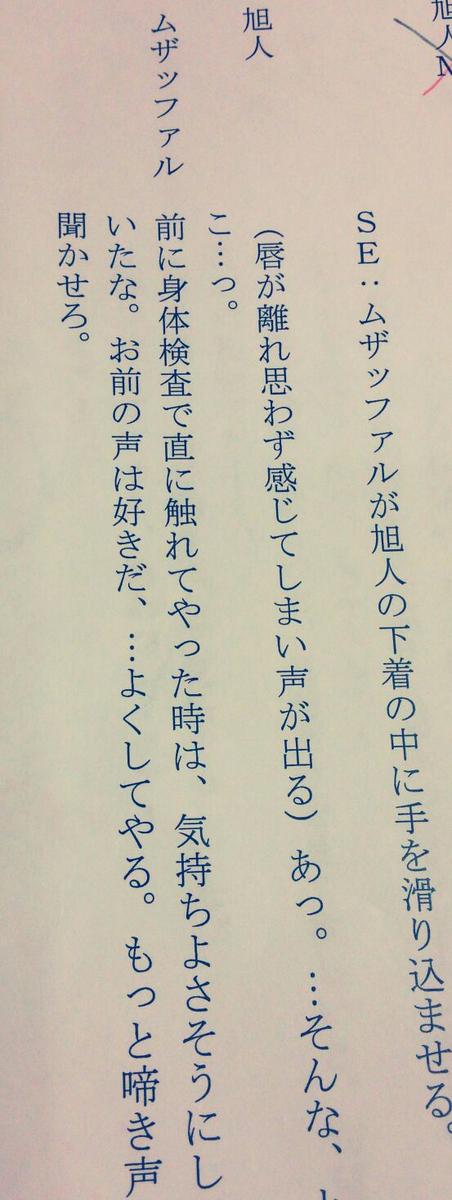 旭人N
SE：ムザッファルが旭人の下着の中に手を滑り込ませる。
旭人
（唇が離れ思わず感じてしまい声が出る）あっ。…そんな、
こ…っ。
ムザッファル
前に身体検査で直に触れてやった時は、気持ちよさそうにし
いたな。お前の声は好きだ、…よくしてやる。もっと啼き声
聞かせろ。